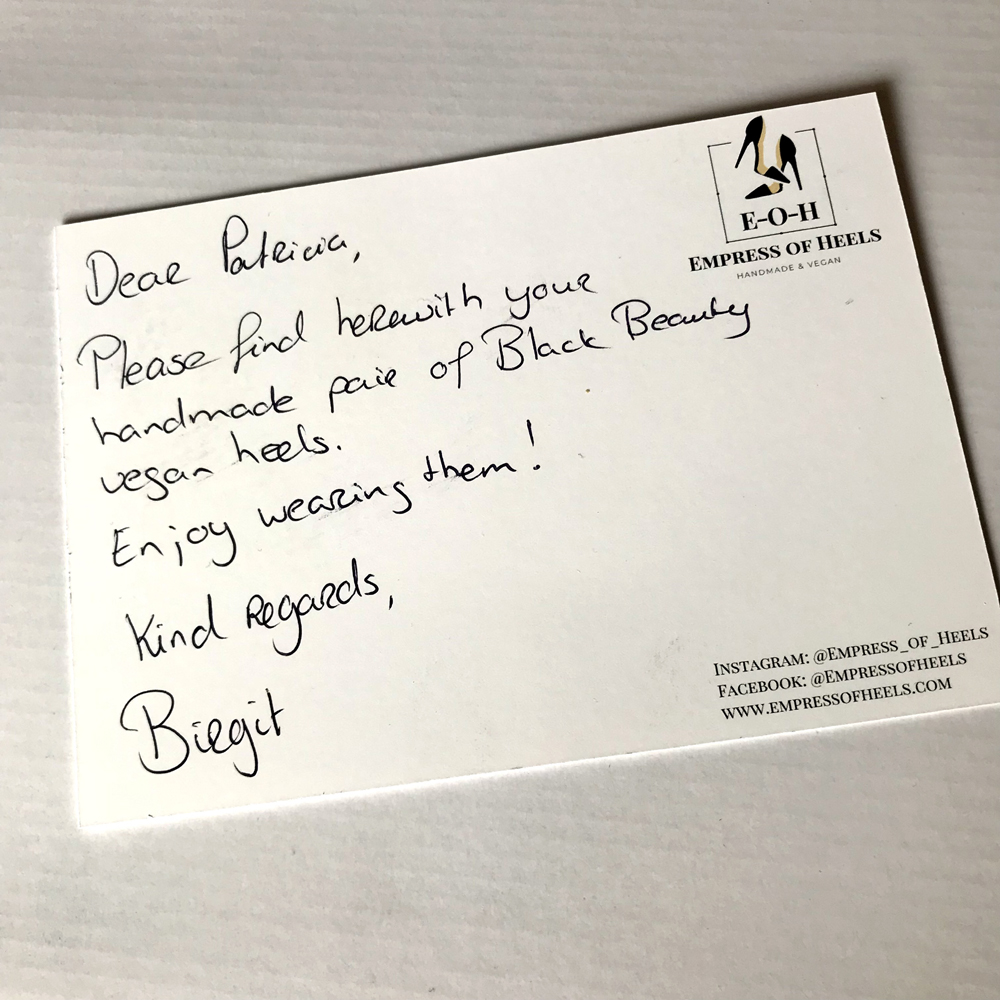 E-O-H
EMPRESS OF HEELS
HANDMADE & VEGAN
Dear Patricia,
Please find herewith your
handmade pair of Black Beauty
vegan heels.
Enjoy wearing them!
Kind regards,
Birgit
INSTAGRAM: @EMPRESS_OF_HEELS
FACEBOOK: @EMPRESSOFHEELS
WWW.EMPRESSOFHEELS.COM